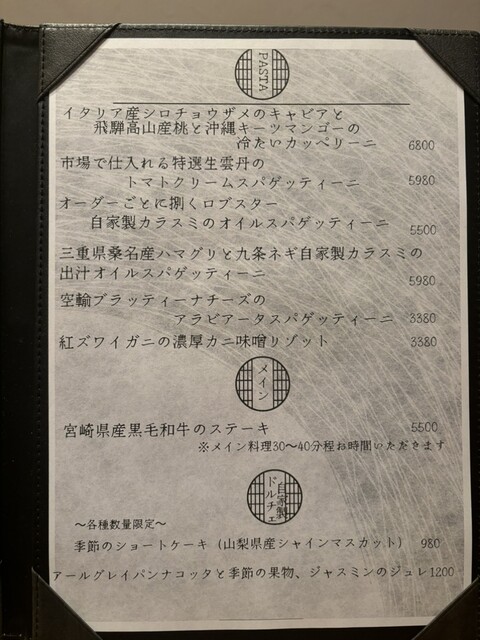 PASTA
イタリア産シロチョウザメのキャビアと
飛騨高山産桃と沖縄キーツマンゴーの
冷たいカッペリーニ 6800
市場で仕入れる特選生雲丹の
トマトクリームスパゲッティーニ 5980
オーダーごとに捌くロブスター
自家製カラスミのオイルスパゲッティーニ 5500
三重県桑名産ハマグリと九条ネギ自家製カラスミの
出汁オイルスパゲッティーニ 5980
空輸ブラッティーナチーズの
アラビアータスパゲッティーニ 3380
紅ズワイガニの濃厚カニ味噌リゾット 3380
メイン
宮崎県産黒毛和牛のステーキ 5500
※メイン料理30～40分程お時間いただきます
自家製
ドルチェ
～各種数量限定～
季節のショートケーキ（山梨県産シャインマスカット） 980
アールグレイパンナコッタと季節の果物、ジャスミンのジュレ1200